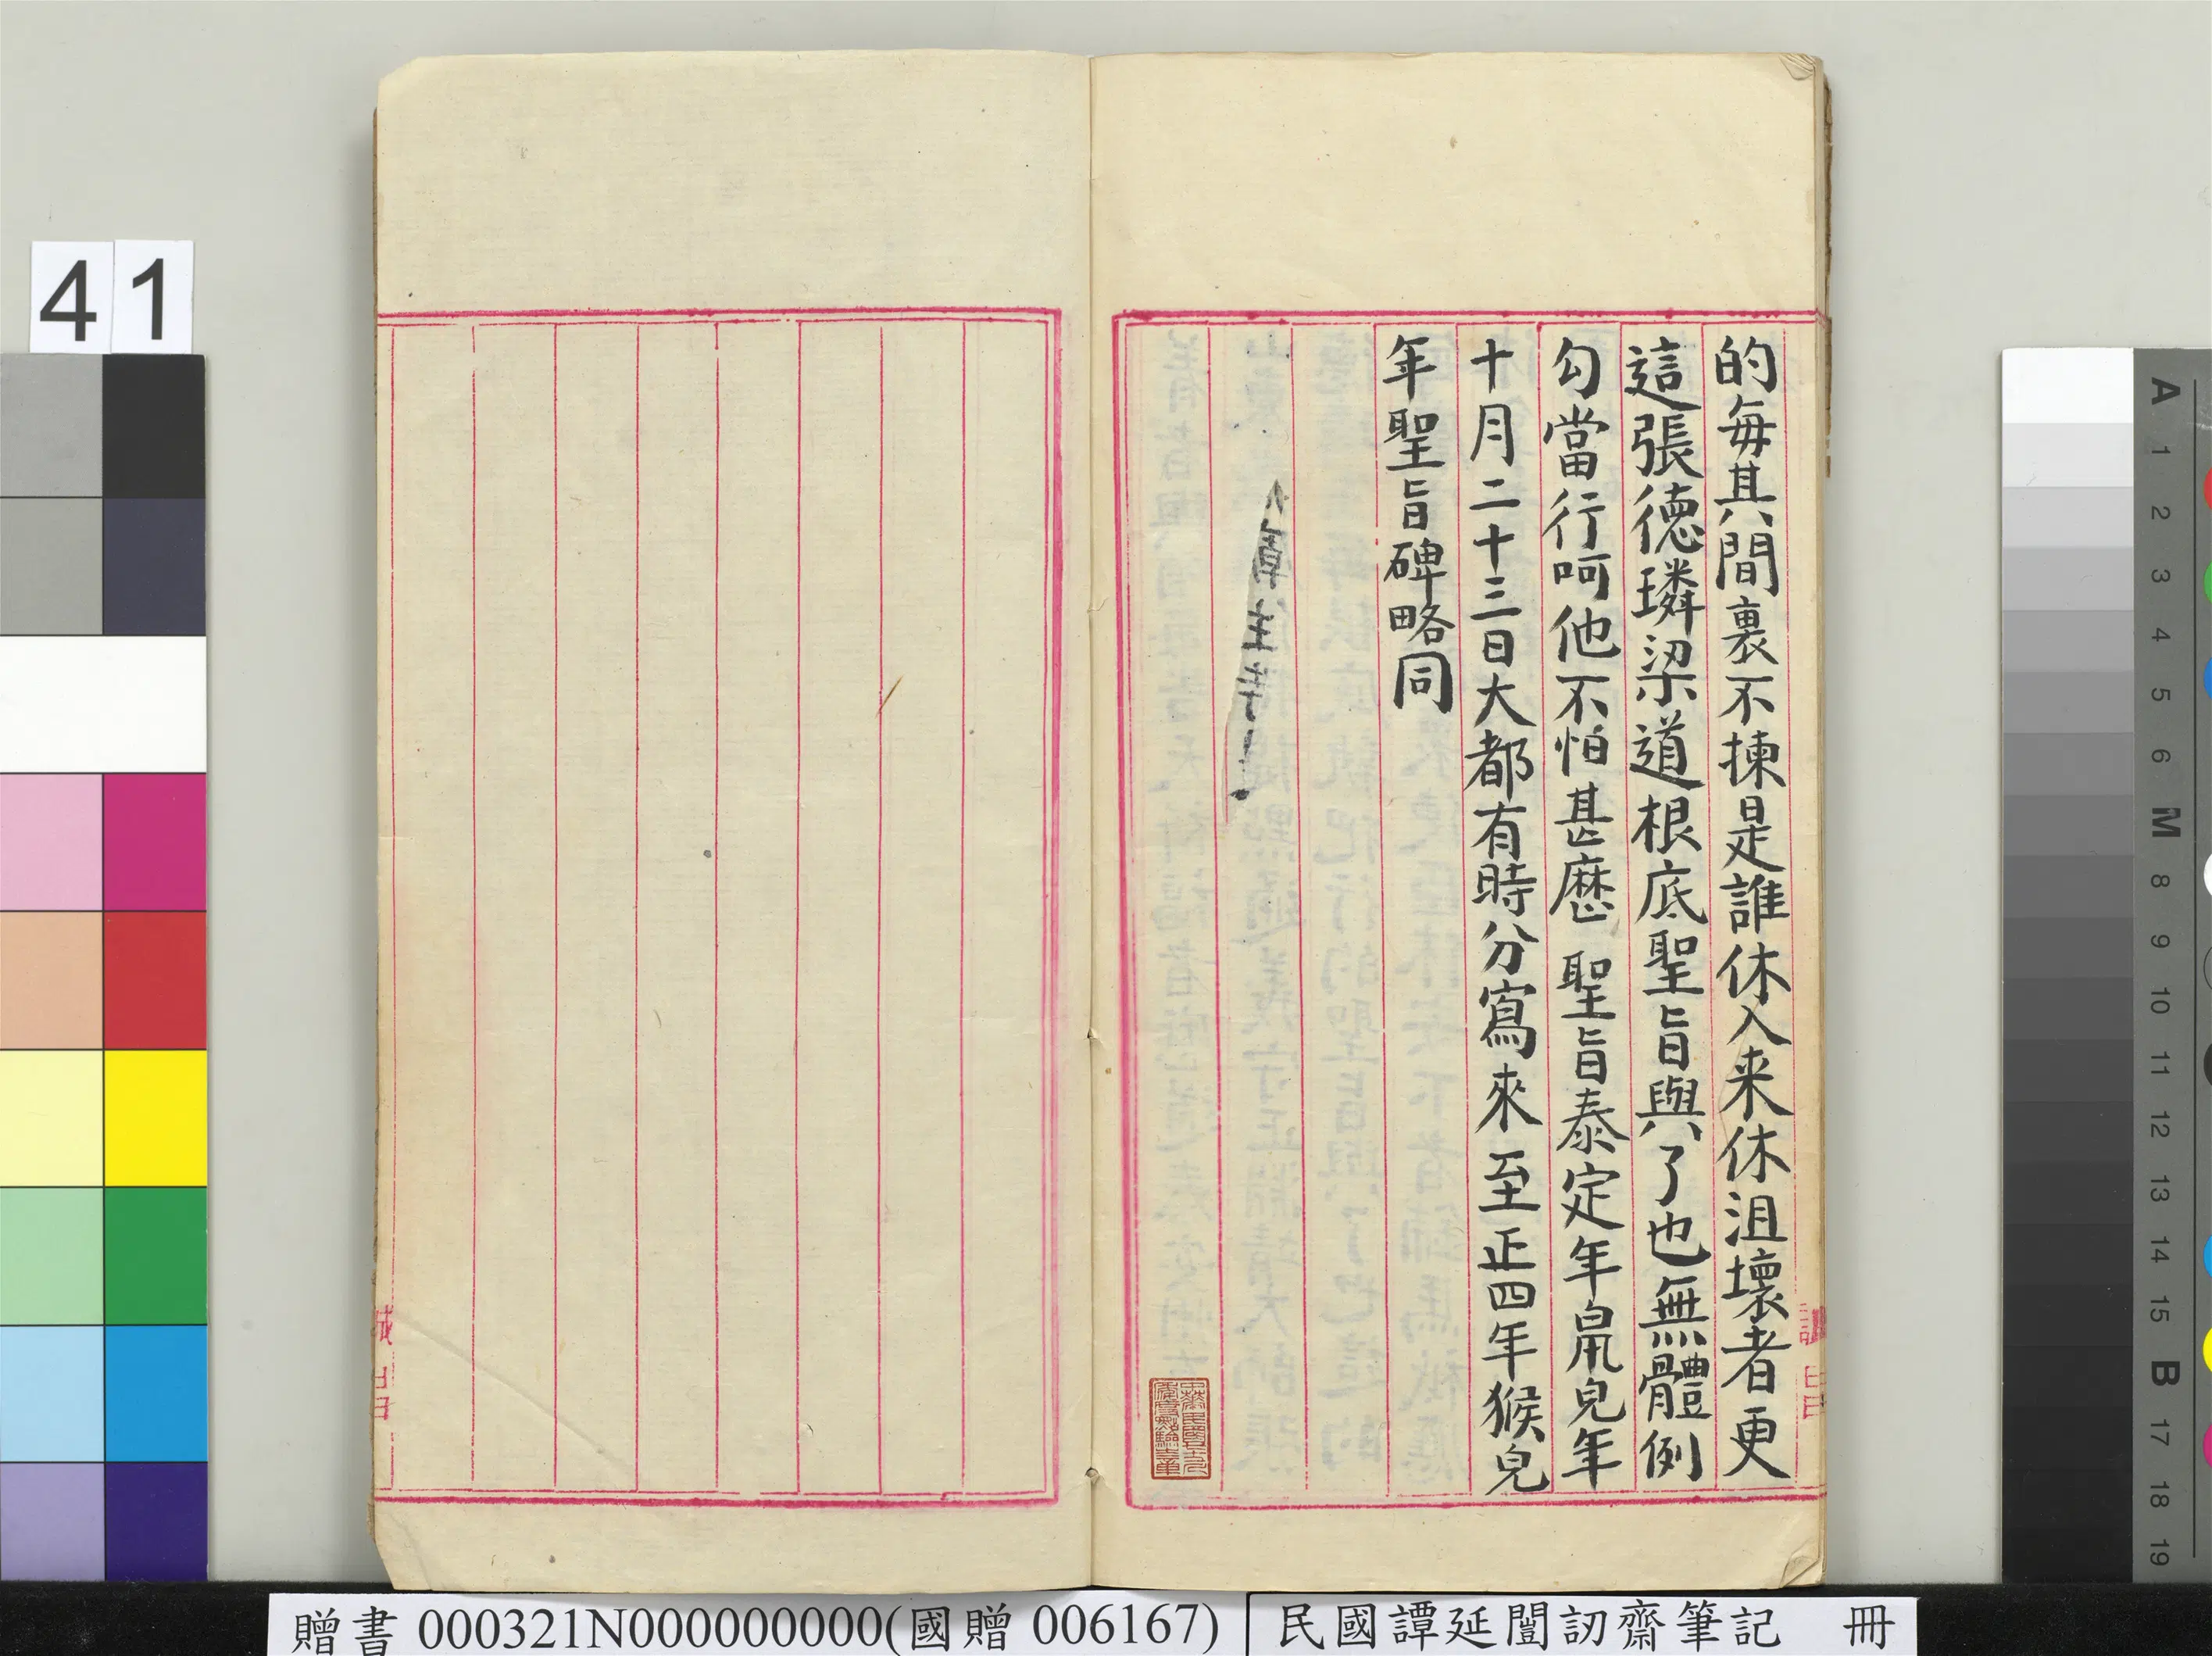 的每其間裏不揀是誰休入来休沮壞者更
這張德璘梁道根底聖旨與了也無體例
勾當行呵他不怕甚麽 聖旨泰定年鼠皃年
十月二十三日大都有時分寫來 至正四年猴皃
年聖旨碑略同
41
A 1 2 3 4 5 6 M 8 9 10 11 12 13 14 15 B 17 18 19
贈書 000321N000000000(國贈 006167)
民國譚延闓訒齋筆記 冊